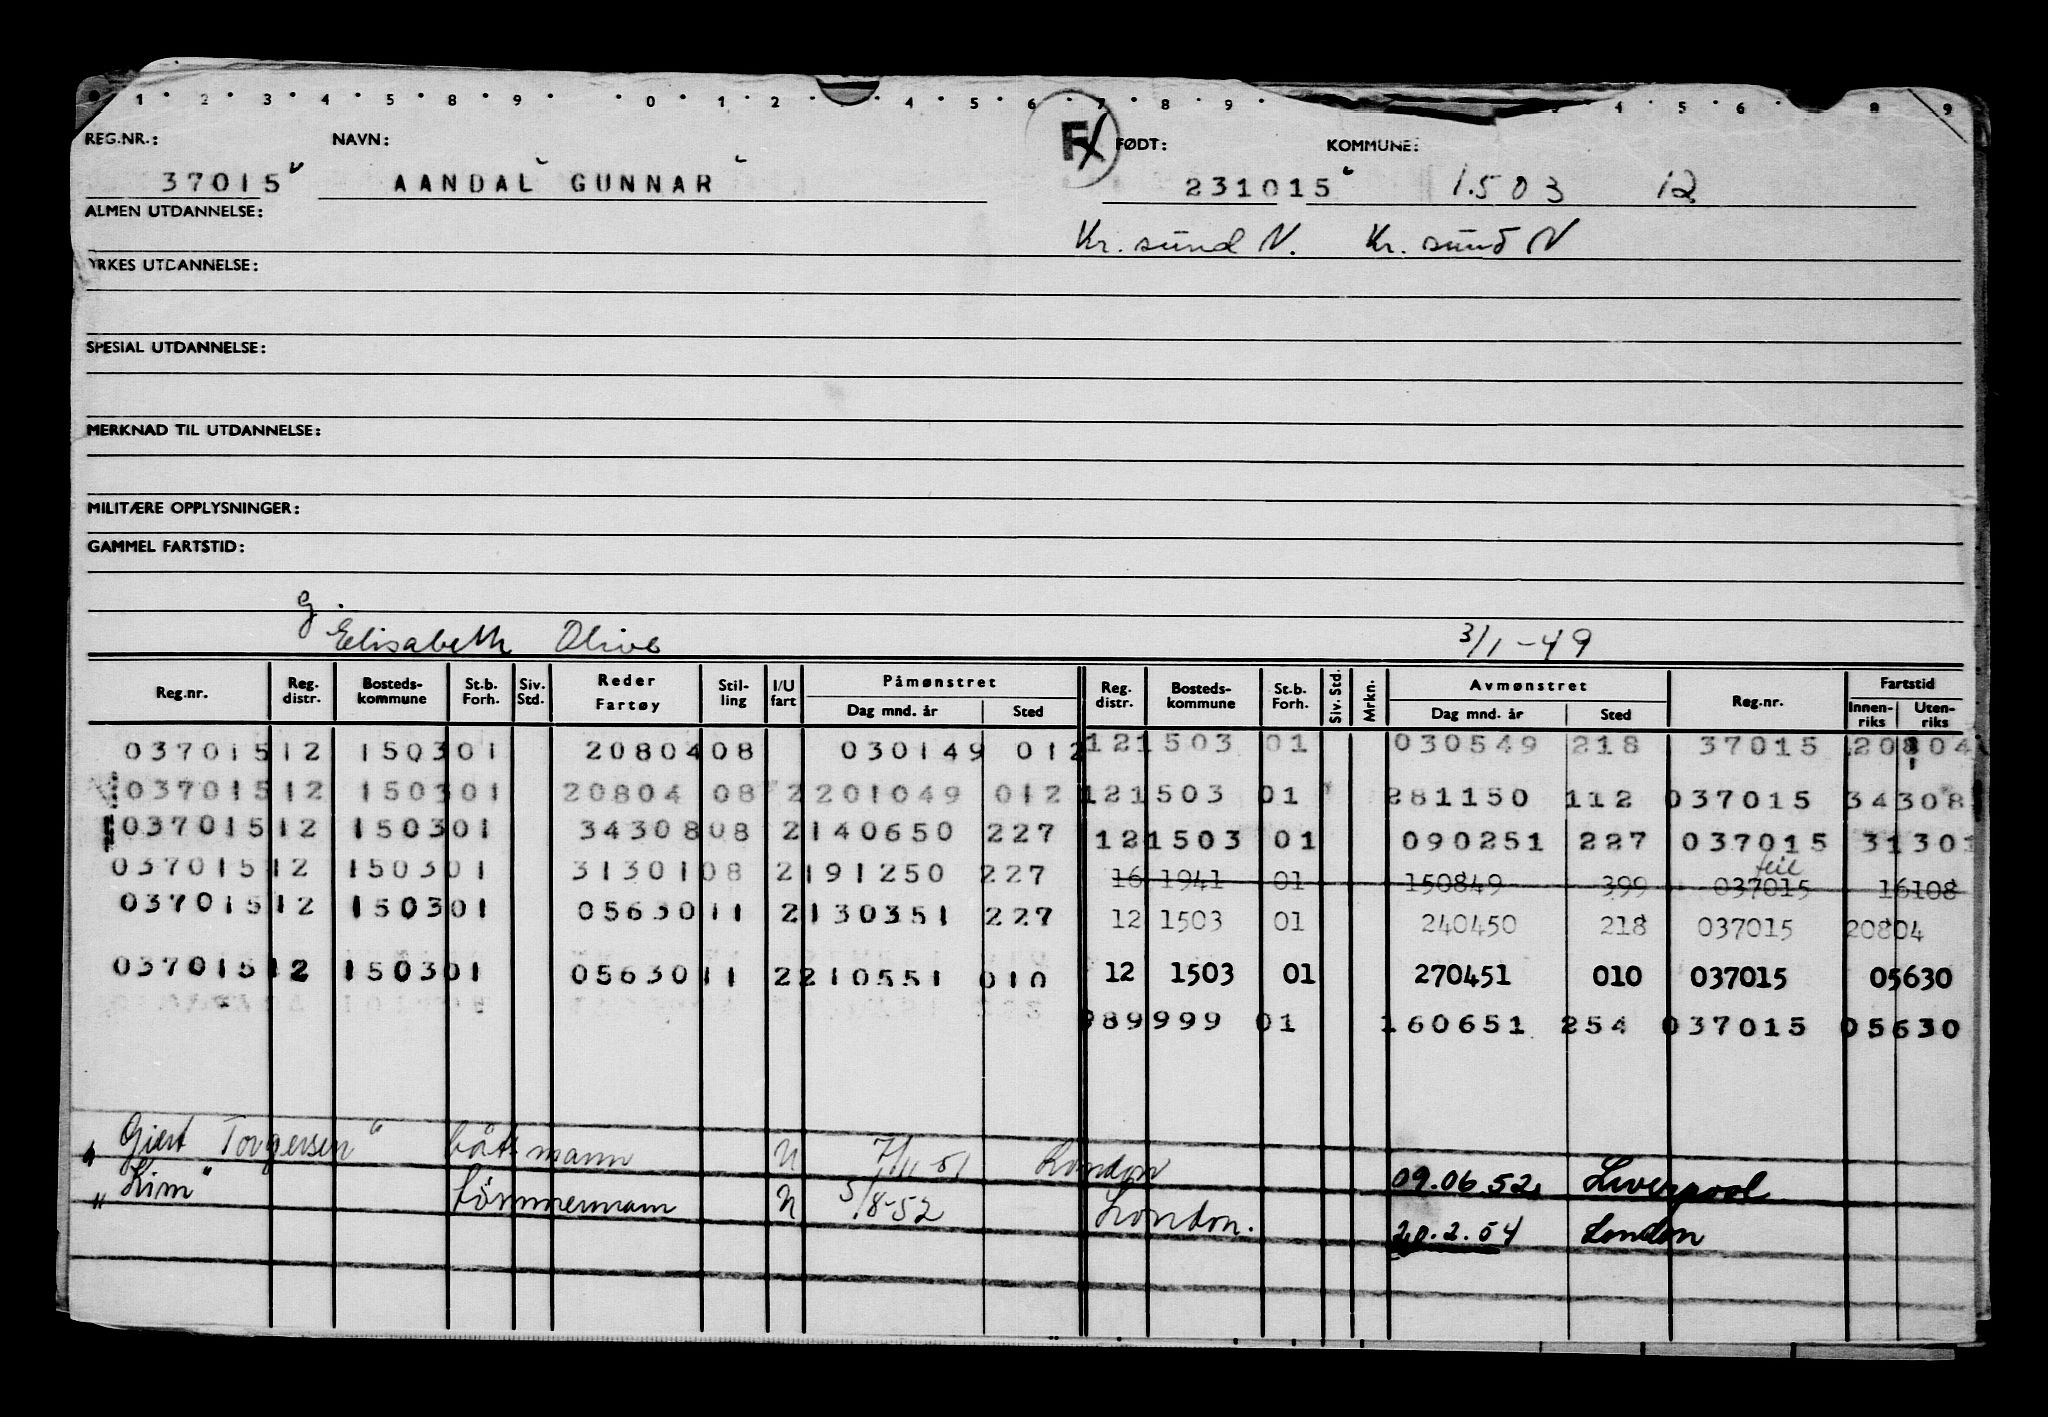 1 · 2 · 3 · 4 · 5 · 8 · 9 · · 0 · 1 · 2 · · 4 · 5 · 6 · 7 · 8 · 9 · 4 · 5 · 6 · 8 · 9
REG.NR.: NAVN: F FØDT: KOMMUNE:
37015 AANDAL GUNNAR 231015 1503 12
ALMEN UTDANNELSE:
Kr. sund N. Kr. sund N
YRKES UTDANNELSE:
SPESIAL UTDANNELSE:
MERKNAD TIL UTDANNELSE:
MILITÆRE OPPLYSNINGER:
GAMMEL FARTSTID:
g. Elisabeth Olive 3/1-49
Reg.nr. Reg. distr. Bosteds- kommune St.b. Forh. Siv. Std. Reder Fartøy Stil- ling I/U fart Påmønstret Dag mnd. år Sted Reg. distr. Bosteds- kommune St.b. Forh. Siv. Std. Mrkn. Avmønstret Dag mnd. år Sted Reg.nr. Fartstid Innen- riks Uten- riks
037015 12 1503 01 20804 08 030149 012 12 1503 01 030549 218 37015 20804
037015 12 1503 01 20804 08 2 201049 012 12 1503 01 281150 112 037015 34308
037015 12 1503 01 34308 08 2 140650 227 12 1503 01 090251 227 037015 31301
feil
037015 12 1503 01 31301 08 2 191250 227 16 1941 01 150849 399 037015 16108
037015 12 1503 01 05630 11 2 130351 227 12 1503 01 240450 218 037015 20804
037015 12 1503 01 05630 11 2 210551 010 12 1503 01 270451 010 037015 05630
989999 01 160651 254 037015 05630
" Giert Torgersen" båtsmann U 7/11-51 London 09.06.52. Liverpool
" Kim" tömmermann U 5/8-52 London. 20.2.54 London